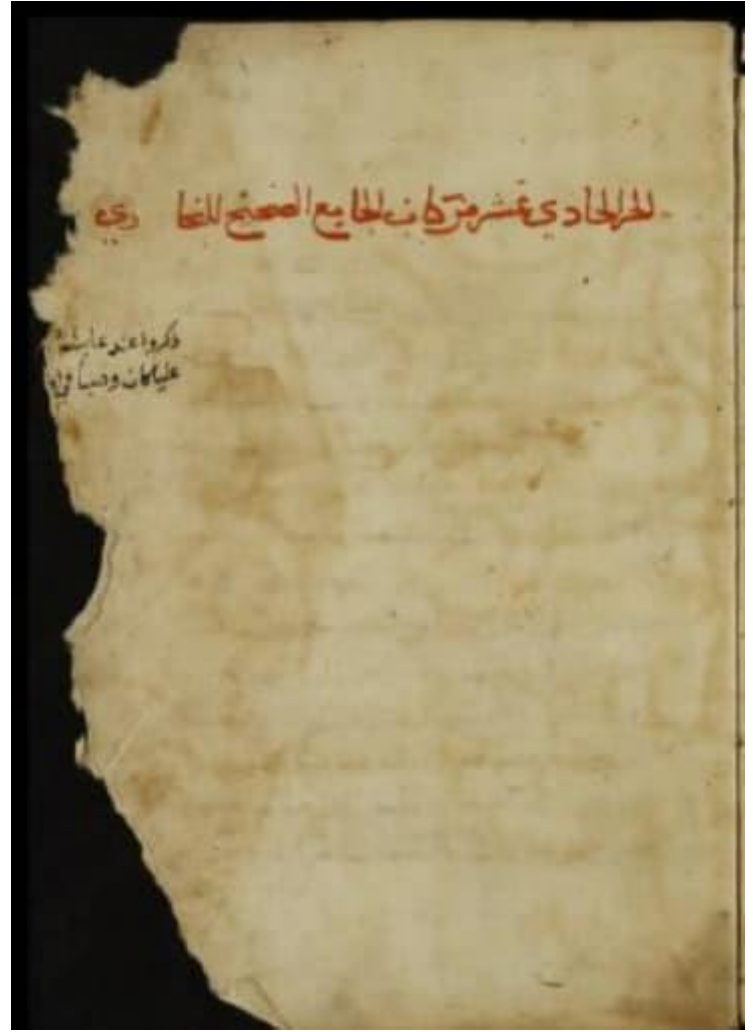 الجزء الحادي عشر من كتاب الجامع الصحيح للبخاري
ذكروا عند عايشة
عليا كان وصيا